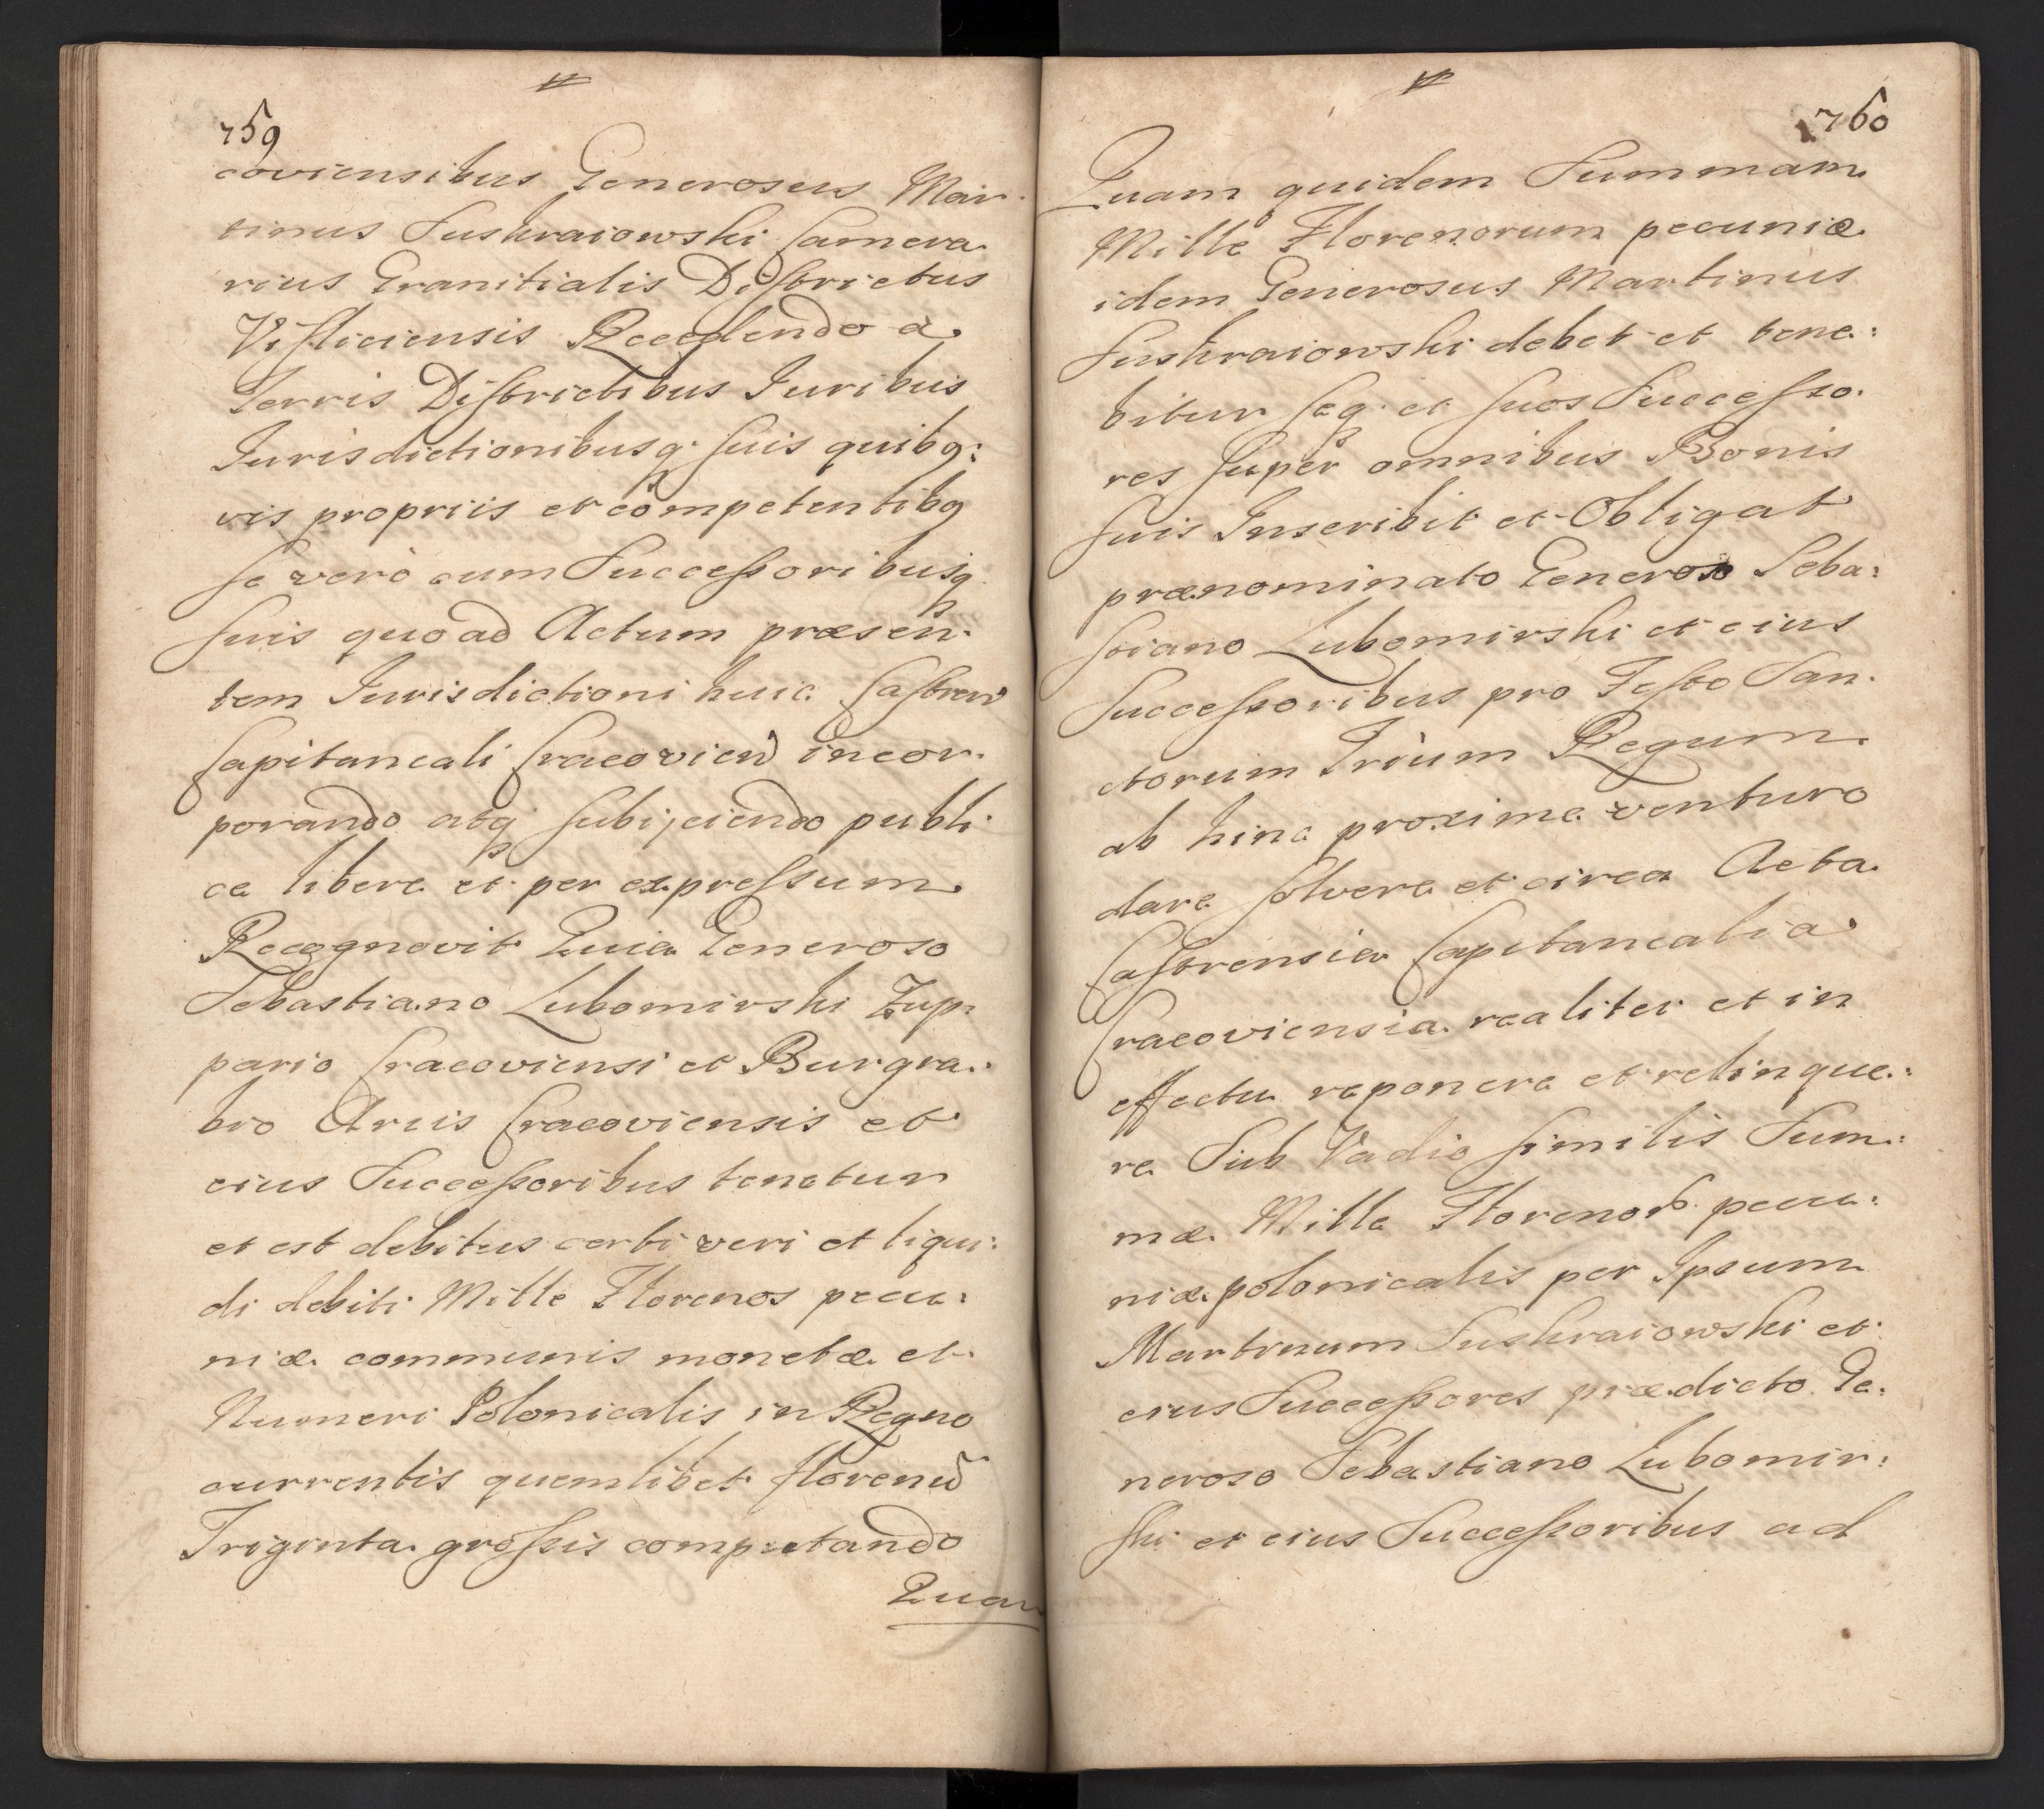 759
coviensibus Generosus Mar-
tinus Suskraiowski Camera
rius Granitialis Districtus
Visliciensis Recedendo a
Terris Districtibus Iuribus
Iurisdictionibusq suis quibq:
vis propriis et competentibq
se vero cum Successoribusq
suis quoad Actum præsen-
tem Iurisdictioni huic Castren
Capitaneali Cracovien incor-
porando atq subijciendo publi
ce libere et per expressum
Recognovit Quia Generoso
Sebastiano Lubomirski Zup-
pario Cracoviensi et Burgra:
bio Arcis Cracoviensis et
eius Successoribus tenetur
et est debitus certi veri et liqui:
di debiti Mille Florenos pecu:
niæ communis monetæ et
Numeri Polonicalis in Regno
currentis quemlibet florenu
Triginta grossis computando
Quam
760
Quam quidem Summam
Mille Florenorum pecuniæ
idem Generosus Martinus
Suskraiowski debet et tene:
bitur seq et suos Successo-
res super omnibus Bonis
suis Inscribit et Obligat
prænominato Generoso Seba:
stiano Lubomirski et eius
Successoribus pro Festo San-
ctorum Trium Regum
ab hinc proxime venturo
dare solvere et circa Acta
Castrensia Capitanealia
Cracoviensia realiter et in
effectu reponere et relinque:
re Sub Vadio similis Sum:
mæ Mille Florenor. pecu:
niæ polonicalis per Ipsum
Martinum Suskraiowski et
eius Successores prædicto Ge:
neroso Sebastiano Lubomir:
ski et eius Successoribus ad